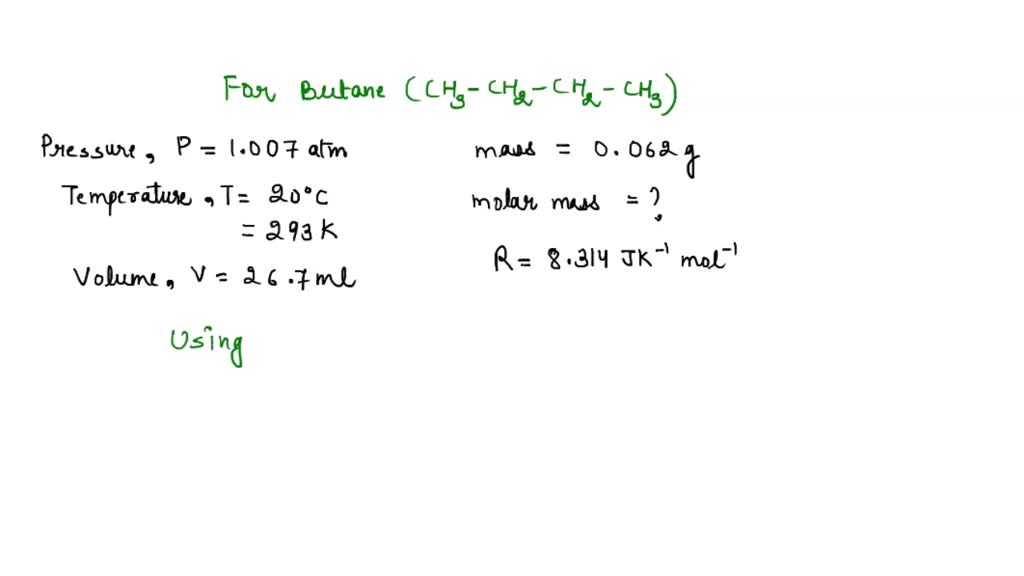 For Butane (CH3-CH2-CH2-CH3)
Pressure, P = 1.007 atm
Temperature, T = 20°C
= 293 K
Volume, V = 26.7 ml
mass = 0.062 g
molar mass = ?
R = 8.314 JK⁻¹ mol⁻¹
Using